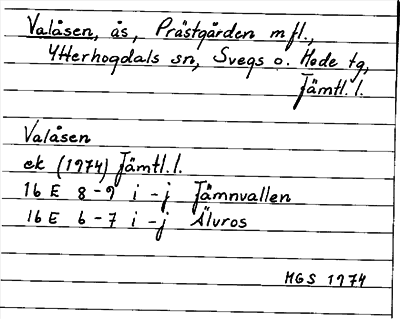 Valåsen, ås, Prästgården m fl.,
Ytterhogdals sn, Svegs o. Hede tg,
Jämtl. l.
Valåsen
ek (1974) Jämtl. l.
16 E 8-9 i-j Jämnvallen
16 E 6-7 i-j Älvros
MGS 1974